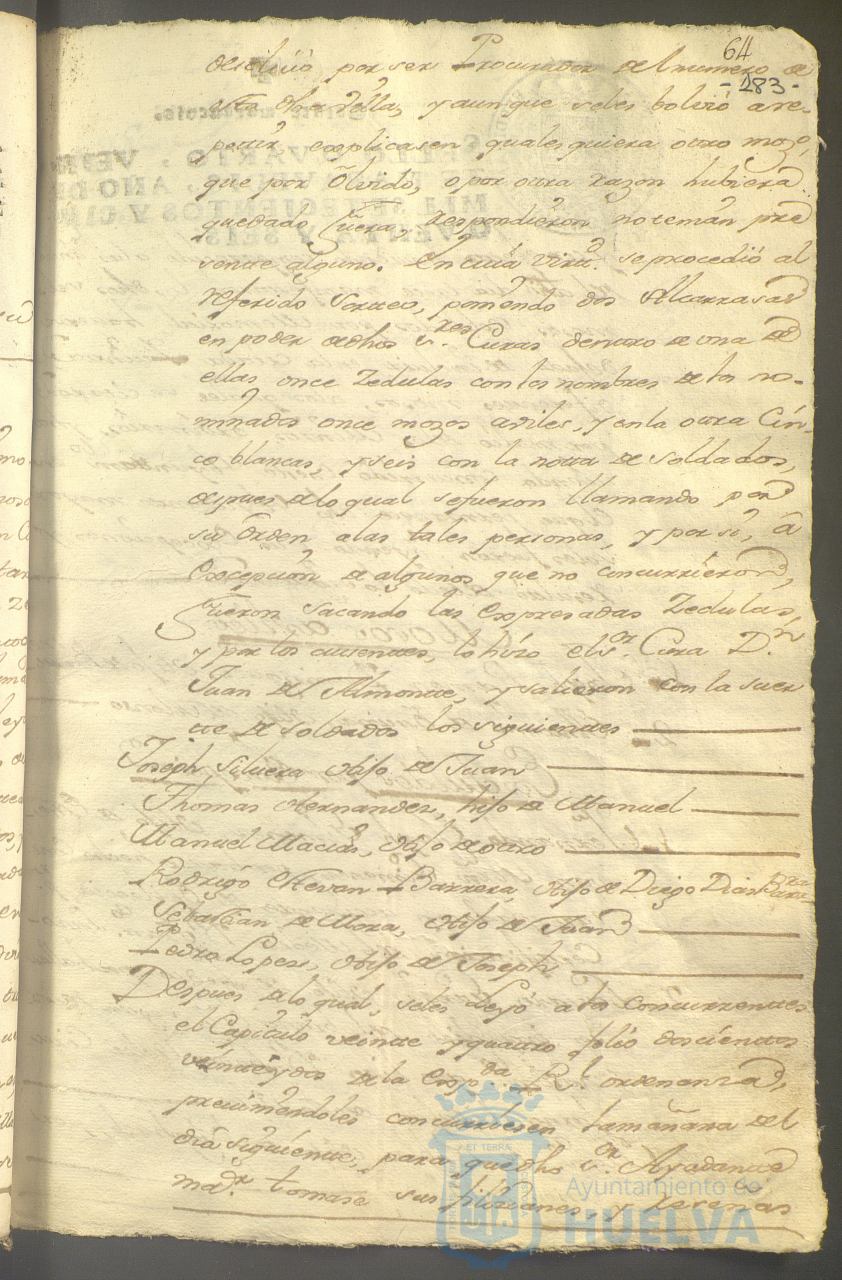 64
-283-
por ser Procurador del numero de
esta dha Villa, y aunque seles bolvió a re-
petir, explicasen quales quiera otro mozo,
que por Olvido, o por otra razon hubiera
quedado fuera, respondieron no tenian pre
sente alguno. En cuia virtd. se procedió al
referido Sorteo, poniendo dos Alcarrasas
en poder de dhos Sres. Curas dentro de una de
ellas once Zedulas con los nombres de los no-
minados once mozos aviles, y en la otra Cin-
co blancas, y seis con la nota de Soldados,
despues de lo qual se fueron llamando por
su Orden a las tales personas, y por sí, á
excepcion de algunos que no concurrieron,
fueron sacando las expresadas Zedulas,
y por los ausentes, lo hizo el Sor. Cura Dn.
Juan de Almonte, y salieron con la suer
te de Soldados los siguientes
Joseph Silvera Hijo de Juan
Thomas Hernandez, hijo de Manuel
Manuel Macias, Hijo de otro
Rodrigo Estevan Barrera, Hijo de Diego Dias
Sebastian de Mora, Hijo de Juan
Pedro Lopez, Hijo de Joseph
Despues de lo qual, seles leyó a los concurrentes
el Capitulo veinte y quatro folio doscientos
veinte y dos de la Expda. Rl. ordenanza,
previniendoles concurriesen la mañana del
dia siguiente, para que dho Sor. Ayudante
mor. tomase sus filiaciones, y
ET TERRÆ
Ayuntamiento de
HUELVA